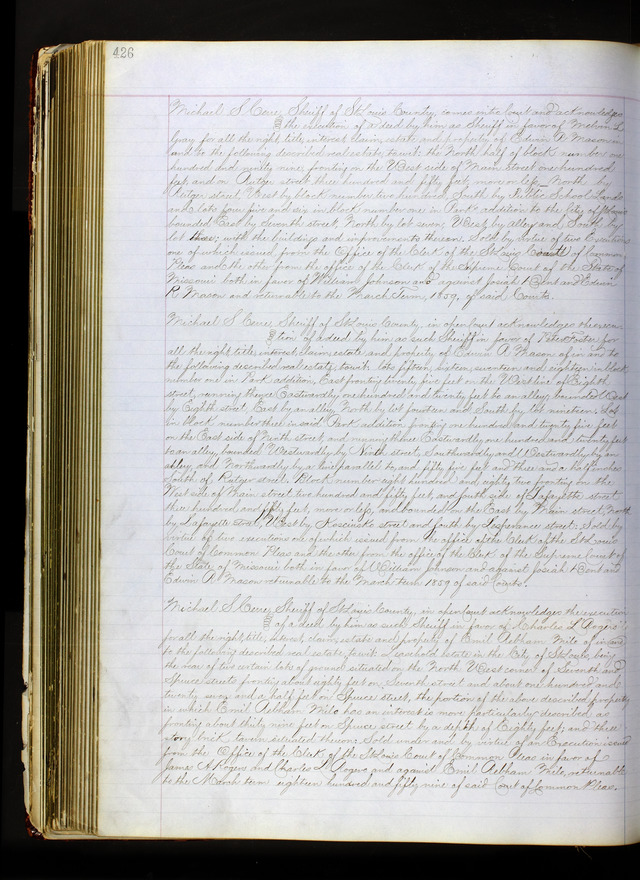 426
Michael S. Cerre, Sheriff of St. Louis County, comes into Court and acknowledges
the execution of a deed by him as Sheriff in favor of Melvin L.
Gray for all the right, title, interest, claim, estate and property of Edwin R. Mason in
and to the following described real estate, to wit: the North half of block number one
hundred and ninety nine, fronting on the West side of Main Street one hundred
feet and on Rutger street three hundred and fifty feet more or less North by
Rutger street, West by block number two hundred, South by Public School Lands
and lots four five and six in block number one in Park addition to the City of St. Louis
bounded East by Seventh street, North by lot seven, West by alley and South by
lot three; with the buildings and improvements thereon. Sold by virtue of two Executions
one of which issued from the Office of the Clerk of the St. Louis Court of Common
Pleas and the other from the office of the Clerk of the Supreme Court of the State of
Missouri both in favor of William Johnson and against Josiah Dent and Edwin
R. Mason and returnable to the March Term, 1859, of said Courts.
Michael S. Cerre, Sheriff of St. Louis County, in open Court acknowledges the execu-
tion of a deed by him as such Sheriff in favor of Peter Foster for
all the right, title, interest, claim, estate and property of Edwin R. Mason of in and to
the following described real estate, to wit: lots fifteen, sixteen, seventeen and eighteen in block
number one in Park addition, East fronting twenty five feet on the West line of Eighth
street, running thence Eastwardly one hundred and twenty feet to an alley, bounded West
by Eighth street, East by an alley, North by lot fourteen and South by lot nineteen. Lot
in block number three in said Park addition fronting one hundred and twenty five feet
on the East side of Ninth street and running thence Eastwardly one hundred and twenty feet
to an alley, bounded Westwardly by Ninth street, Southwardly and Eastwardly by an
alley, and Northwardly by a line parallel to and fifty five feet and three and a half inches
South of Rutger street. Block number eight hundred and eighty two fronting on the
West side of Main street two hundred and fifty feet, and south side of Lafayette street
three hundred and fifty feet, more or less, and bounded on the East by Main street, North
by Lafayette street, West by Kosciusko street and South by Lesperance street: Sold by
virtue of two executions one of which issued from the office of the Clerk of the St. Louis
Court of Common Pleas and the other from the office of the Clerk of the Supreme Court of
the State of Missouri both in favor of William Johnson and against Josiah Dent and
Edwin R. Mason returnable to the March term 1859 of said Courts.
Michael S. Cerre, Sheriff of St. Louis County, in open Court acknowledges the execution
of a deed by him as such Sheriff in favor of Charles L. Rogers
for all the right, title, interest, claim, estate and property of Emil Aebham Milo of in and
to the following described real estate, to wit: Leasehold estate in the City of St. Louis, being
the rear of two certain lots of ground situated on the North West corner of Seventh and
Spruce streets fronting about eighty feet on Seventh street and about one hundred and
twenty seven and a half feet on Spruce street, the portion of the above described property
in which Emil Aebham Milo has an interest is more particularly described as
fronting about thirty nine feet on Spruce street by a depth of Eighty feet, and three
story brick tavern selected thereon. Sold under and by virtue of an Execution issued
from the Office of the Clerk of the St. Louis Court of Common Pleas in favor of
James A. Rogers and Charles L. Rogers and against Emil Aebham Milo, returnable
to the March term eighteen hundred and fifty nine of said Court of Common Pleas.